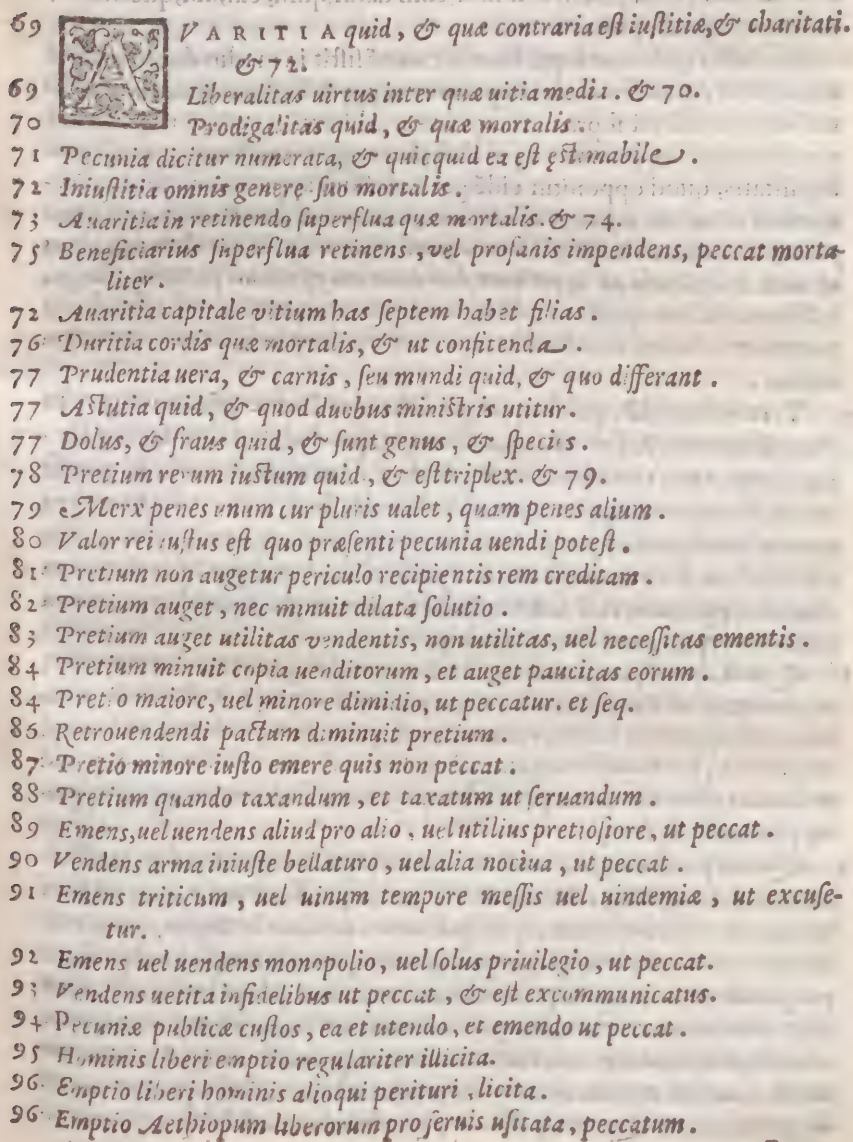 69 AVARITIA quid, & quæ contraria est iustitiæ, & charitati.
& 72.
69 Liberalitas uirtus inter quæ uitia media. & 70.
70 Prodigalitas quid, & quæ mortalis.
71 Pecunia dicitur numerata, & quicquid ea est ęstimabile.
72 Iniustitia omnis genere suo mortalis.
73 Auaritia in retinendo superflua quæ mortalis. & 74.
75 Beneficiarius superflua retinens, vel profanis impendens, peccat morta-
liter.
72 Auaritia capitale vitium has septem habet filias.
76 Duritia cordis quæ mortalis, & ut confitenda.
77 Prudentia uera, & carnis, seu mundi quid, & quo differant.
77 Astutia quid, & quod duobus ministris utitur.
77 Dolus, & fraus quid, & sunt genus, & species.
78 Pretium rerum iustum quid, & est triplex. & 79.
79 Merx penes unum cur pluris ualet, quam penes alium.
80 Valor rei iustus est quo præsenti pecunia uendi potest.
81 Pretium non augetur periculo recipientis rem creditam.
82 Pretium auget, nec minuit dilata solutio.
83 Pretium auget utilitas vendentis, non utilitas, uel necessitas ementis.
84 Pretium minuit copia uenditorum, et auget paucitas eorum.
84 Pretio maiore, uel minore dimidio, ut peccatur. et seq.
86 Retrouendendi pactum diminuit pretium.
87 Pretio minore iusto emere quis non peccat.
88 Pretium quando taxandum, et taxatum ut seruandum.
89 Emens, uel uendens aliud pro alio, uel utilius pretiosiore, ut peccat.
90 Vendens arma iniuste bellaturo, uel alia nociua, ut peccat.
91 Emens triticum, uel uinum tempore messis uel uindemiæ, ut excuse-
tur.
92 Emens uel uendens monopolio, uel solus priuilegio, ut peccat.
93 Vendens uetita infidelibus ut peccat, & est excommunicatus.
94 Pecuniæ publicæ custos, ea et utendo, et emendo ut peccat.
95 Hominis liberi emptio regulariter illicita.
96 Emptio liberi hominis alioqui perituri, licita.
96 Emptio Aethiopum liberorum pro seruis usitata, peccatum.